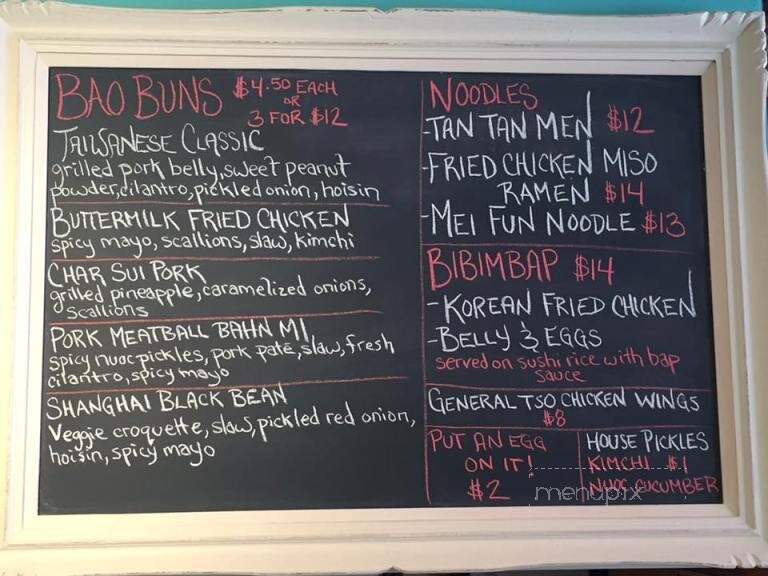 BAO BUNS $4.50 EACH
OR
3 FOR $12
TAIWANESE CLASSIC
grilled pork belly, sweet peanut
powder, cilantro, pickled onion, hoisin
BUTTERMILK FRIED CHICKEN
spicy mayo, scallions, slaw, kimchi
CHAR SUI PORK
grilled pineapple, caramelized onions,
scallions
PORK MEATBALL BAHN MI
spicy nuoc pickles, pork paté, slaw, fresh
cilantro, spicy mayo
SHANGHAI BLACK BEAN
Veggie croquette, slaw, pickled red onion,
hoisin, spicy mayo
NOODLES
-TAN TAN MEN $12
-FRIED CHICKEN MISO
RAMEN $14
-MEI FUN NOODLE $13
BIBIMBAP $14
-KOREAN FRIED CHICKEN
-BELLY & EGGS
served on sushi rice with bap
sauce
GENERAL TSO CHICKEN WINGS
$8
PUT AN EGG
ON IT!
$2
HOUSE PICKLES
KIMCHI $1
NUOC CUCUMBER
menupix